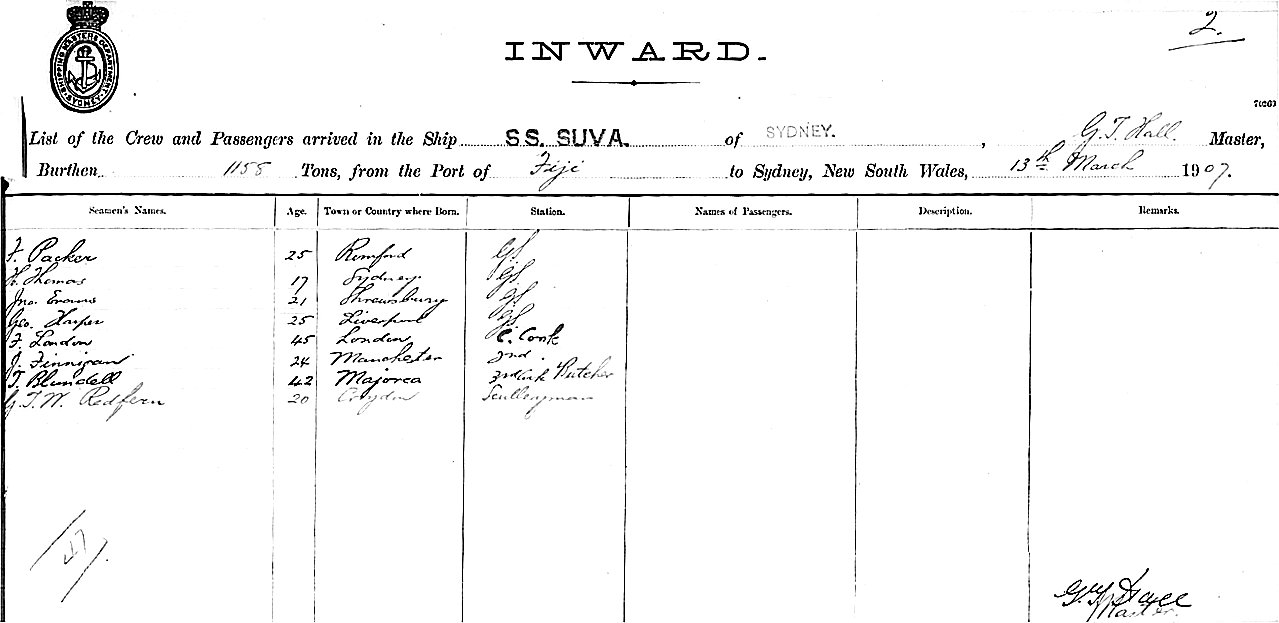 SHIPPING MASTERS DEPARTMENT SYDNEY
2.
INWARD.
List of the Crew and Passengers arrived in the Ship SS. SUVA. of SYDNEY. , G. T. Hall. Master,
Burthen 1158 Tons, from the Port of Fiji to Sydney, New South Wales, 13th March 1907.
Seamen's Names. Age. Town or Country where Born. Station. Names of Passengers. Description. Remarks.
F. Packer 25 Romford G.S.
H. Thomas 17 Sydney G.S.
Jno. Evans 21 Shrewsbury G.S.
Geo. Harper 25 Liverpool G.S.
F. London 45 London C. Cook
J. Finnigan 24 Manchester 2nd.
T. Blundell 42 Majorca 3rd Cook Butcher
G. T. W. Redfern 20 Croydon Sculleryman
G. T. Hall
Master.